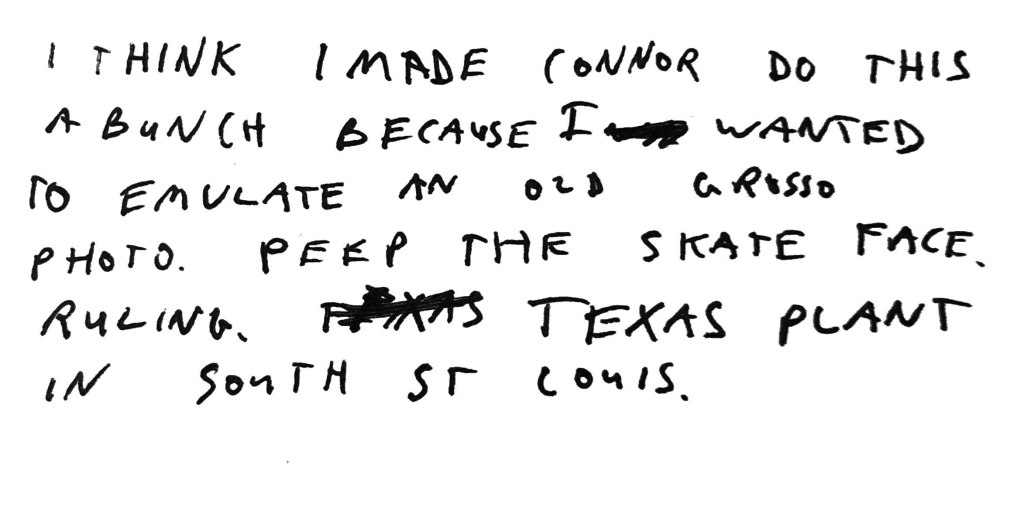 I THINK I MADE CONNOR DO THIS
A BUNCH BECAUSE I WANTED
TO EMULATE AN OLD GROSSO
PHOTO. PEEP THE SKATE FACE.
RULING. TEXAS PLANT
IN SOUTH ST LOUIS.